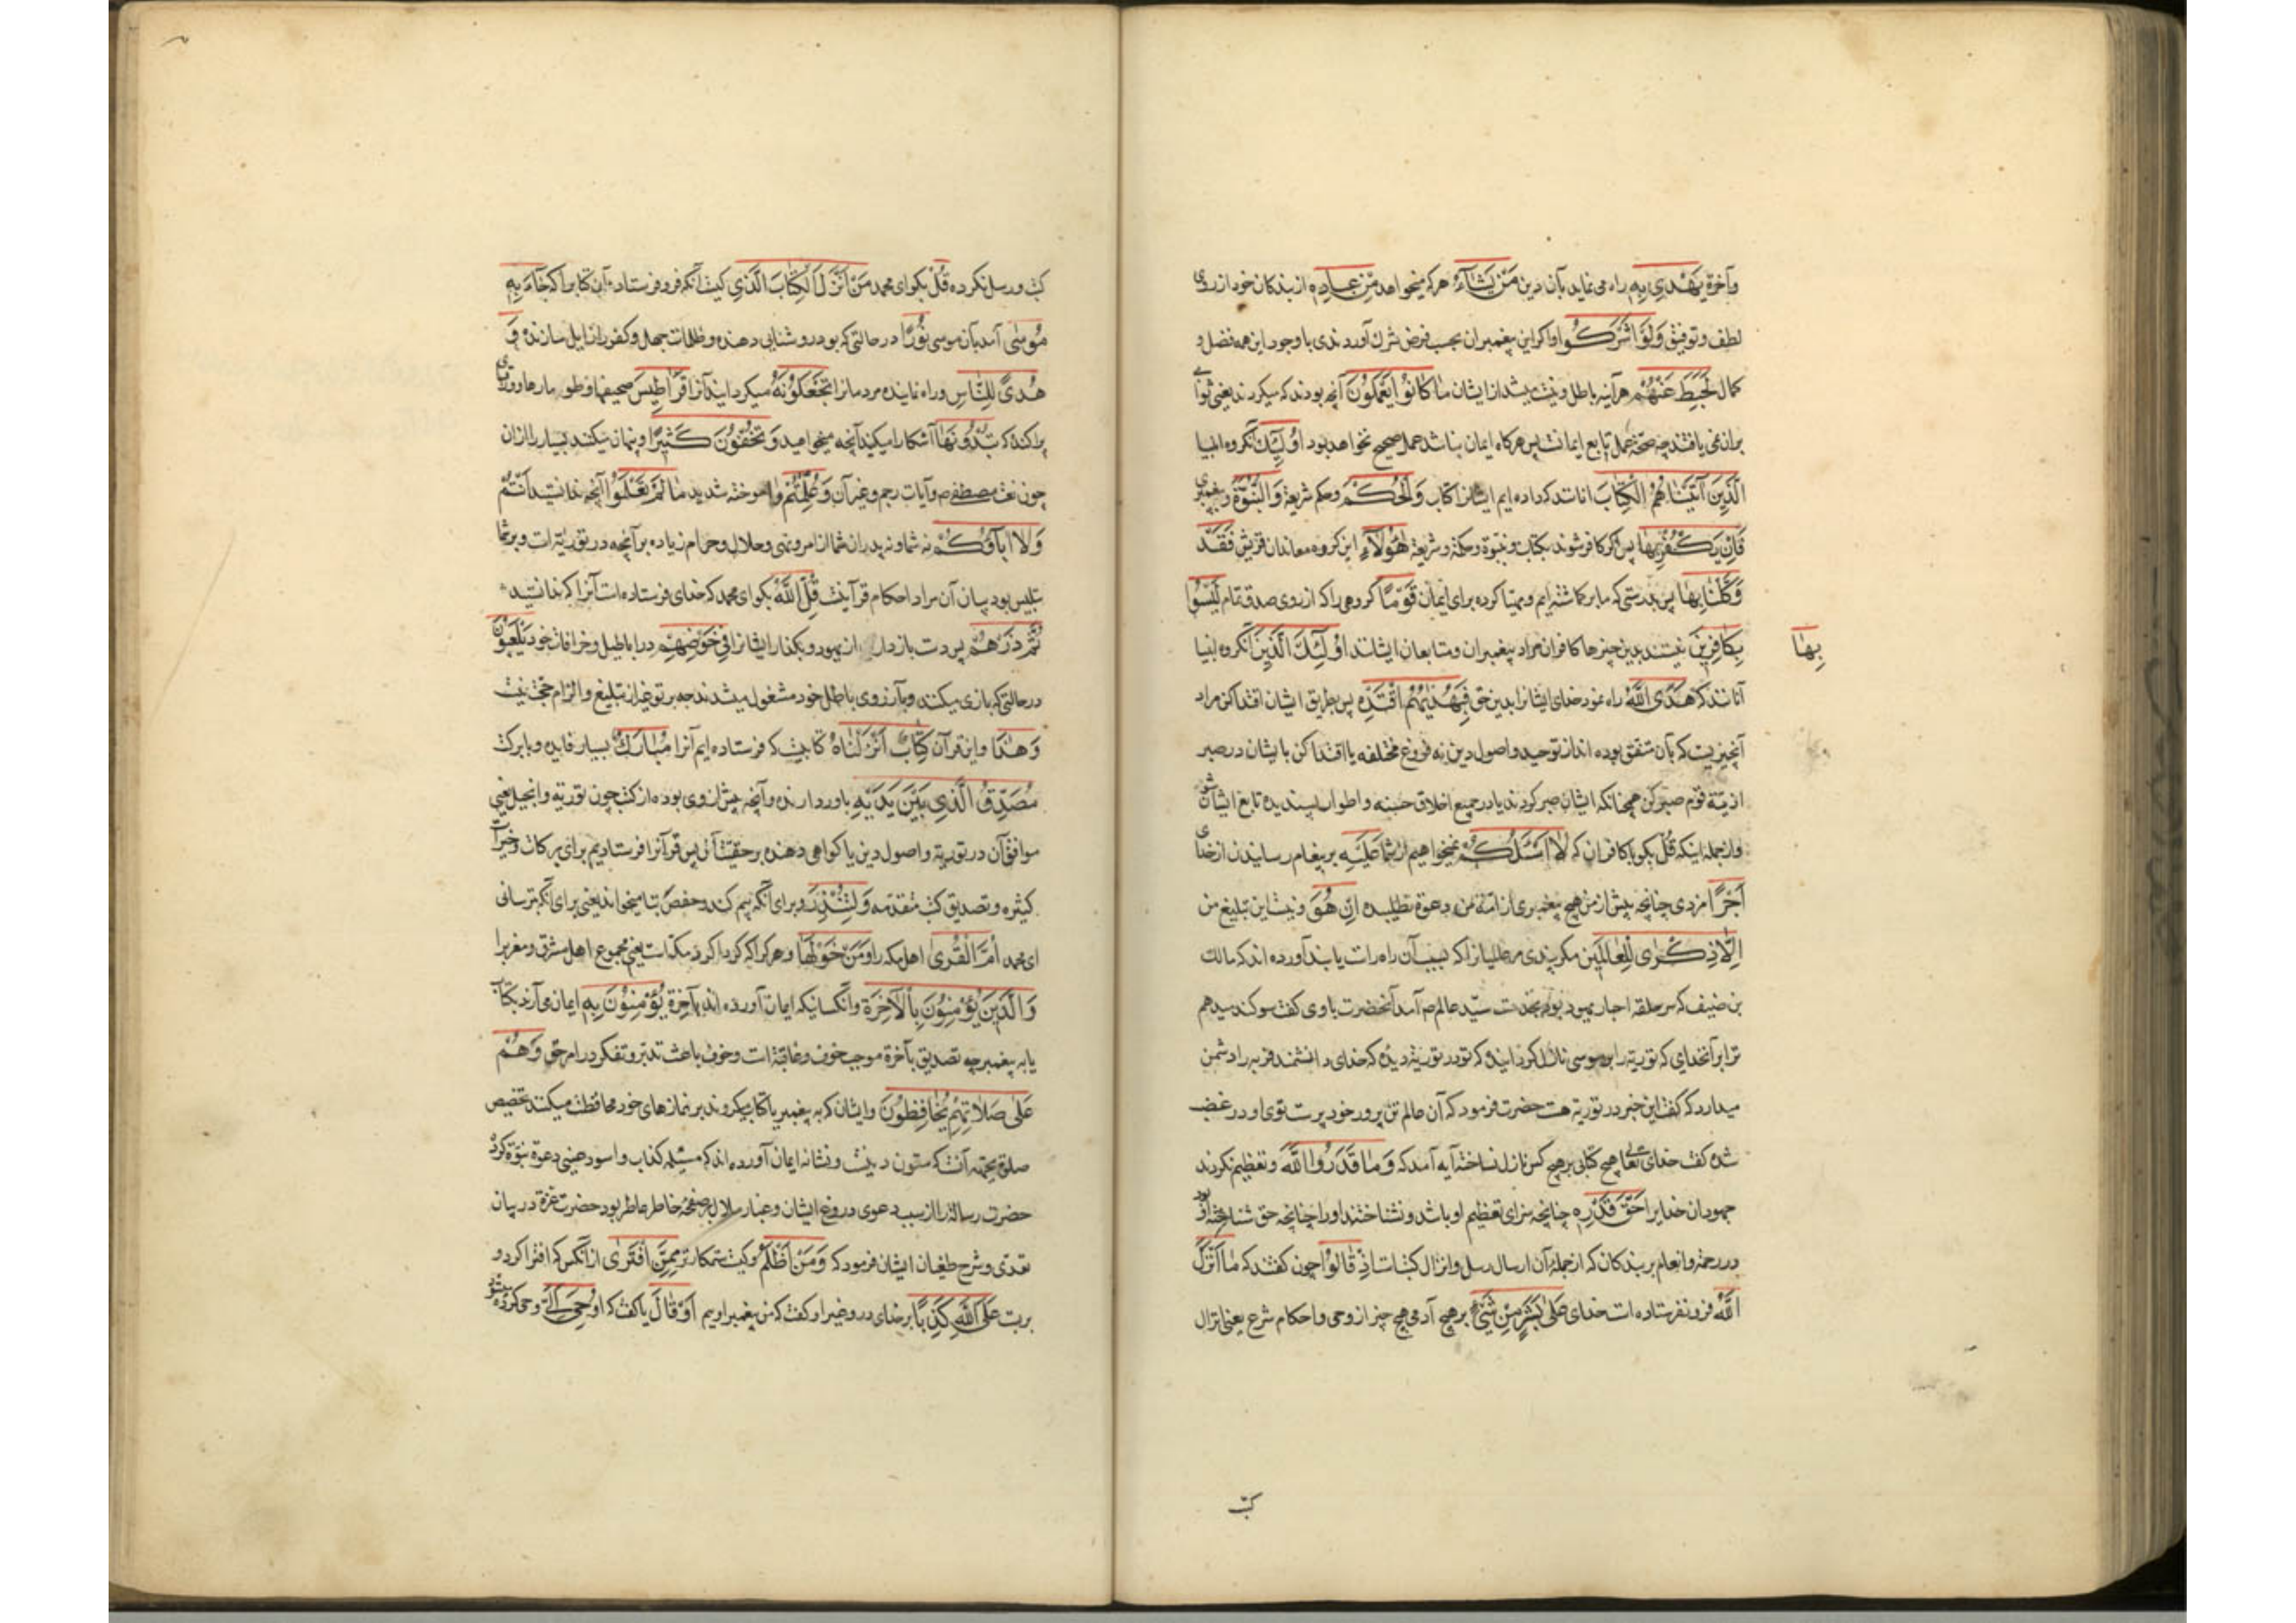 وآخرة يَهْدِي بِهِ راه می نماید بآن دین مَنْ يَشَآءُ هر که میخواهد مِنْ عِبادِهِ از بندکان خود از روی
لطف وتوفیق وَلَوْ اَشْرَكُوا واکر این پیغمبران بحسب فرض شرك آوردندی با وجود این همه فضل و
کمال لَحَبِطَ عَنْهُمْ هرآینه باطل ونیست میشد از ایشان مٰا كٰانُوا يَعْمَلُونَ آنچه بودند که میکردند یعنی ثوابی
بران نمی یافتند چه صحّة عمل تابع ایمانست پس هرکاه ایمان نباشد عمل صحیح نخواهد بود اُولٰٓئِكَ آنکروه انبیا
الَّذِينَ آتَيْنٰاهُمُ الْكِتٰابَ آنانند که داده ایم ایشانرا کتاب وَالْحُكْمَ وحکم شریعة وَالنُّبُوَّةَ وپیغمبری
فَاِنْ يَكْفُرْ بِهٰا پس اکر کافر شوند بکتاب ونبوة وحکمة وشریعة هٰؤُلآءِ این کروه معاندان قریش فَقَدْ
وَكَّلْنٰا بِهٰا پس بدرستی که ما برکماشته ایم ومهیّا کرده برای ایمان قَوْمًا کروهی را که از روی صدق تمام لَيْسُوا
بِهٰا
بِكٰافِرِينَ نیستند بدین چیزها کافران مراد پیغمبران ومتابعان ایشانند اُولٰٓئِكَ الَّذِينَ آنکروه انبیا
آنانند که هَدَى اللّٰهُ راه نمود خدای ایشانرا بدین حق فَبِهُدٰيهُمُ اقْتَدِهْ پس بطریق ایشان اقتدا کن مراد
آنچیزیست که بآن متفق بوده اند از توحید واصول دین نه فروع مختلفه یا اقتدا کن بایشان در صبر
اذیّة قوم صبر کن همچنانکه ایشان صبر کردند یا در جمیع اخلاق حسنه واطوار پسندیده تابع ایشان شو
واز جمله اینکه قُلْ بکو با کافران که لٰا اَسْئَلُكُمْ نمیخواهیم از شما عَلَيْهِ بر پیغام رسانیدن از خدای
اَجْرًا مزدی چنانچه پیش از من هیچ پیغمبری از امّة مزد دعوة نطلبیده اِنْ هُوَ ونیست این تبلیغ من
اِلّٰا ذِكْرٰى لِلْعٰالَمِينَ مکر پندی مر عالمیانرا که بسبب آن راه راست یابند آورده اند که مالك
بن ضیف که سرحلقه احبار یهود بود بخدمت سیّد عالم ص آمد آنحضرت با وی کفت سوکند میدهم
ترا بر آنخدایی که توریة را بر موسی نازل کردانیده که تو در توریة دیده که خدای دانشمند فربه را دشمن
میدارد که کفت این خبر در توریة هست حضرت فرمود که آن عالم تن پرور خود پرست توی او در غضب
شده کفت خدای تعالی هیچ کتابی بر هیچ کس نازل نساخته آیه آمد که وَمٰا قَدَرُوا اللّٰهَ وتعظیم نکردند
جهودان خدایرا حَقَّ قَدْرِهِ چنانچه سزای تعظیم او باشد ونشناختند اورا چنانچه حق شناختن او بود
در رحمة وانعام بر بندکان که از جملهٔ آن ارسال رسل وانزال کتبست اِذْ قٰالُوا چون کفتند که مٰا اَنْزَلَ
اللّٰهُ فرو نفرستاده است خدای عَلٰى بَشَرٍ مِنْ شَيْءٍ بر هیچ آدمی هیچ چیز از وحی واحکام شرع یعنی انزال
کتب
کتب ورسل نکرده قُلْ بکو ای محمد مَنْ اَنْزَلَ الْكِتٰابَ الَّذِي کیست آنکه فرو فرستاد آن کتابرا که جٰآءَ بِهِ
مُوسٰى آمد بآن موسی نُورًا در حالتی که بود روشنایی دهنده وظلمات جهل وکفر را زایل سازنده وَ
هُدًى لِلنّٰاسِ وراه نماینده مردمانرا تَجْعَلُونَهُ میکردانید آنرا قَرٰاطِيسَ صحیفها وطومارها وورقهای
پراکنده که تُبْدُونَهٰا آشکارا میکنید آنچه میخواهید وَتُخْفُونَ كَثِيرًا وپنهان میکنید بسیار را از ان
چون نعت مصطفی ص وآیات رجم وغیر آن وَعُلِّمْتُمْ وآموخته شدید مٰا لَمْ تَعْلَمُوا آنچه ندانستید اَنْتُمْ
وَلٰا آبٰآؤُكُمْ نه شما ونه پدران شما از امر ونهی وحلال وحرام زیاده بر آنچه در توریة است وبر شما
تلبیس بود بیان آن مراد احکام قرآنست قُلِ اللّٰهُ بکو ای محمد که خدای فرستاده است آنرا که ندانستید
ثُمَّ ذَرْهُمْ پس دست بازدار از یهود وبکذار ایشانرا فِي خَوْضِهِمْ در اباطیل وخرافات خود يَلْعَبُونَ
در حالتی که بازی میکنند وبآرزوی باطل خود مشغول میشدند چه بر تو غیر از تبلیغ والزام حجّت نیست
وَهٰذٰا واین قرآن كِتٰابٌ اَنْزَلْنٰاهُ کتابیست که فرستاده ایم آنرا مُبٰارَكٌ بسیار فایده وبا برکت
مُصَدِّقُ الَّذِي بَيْنَ يَدَيْهِ باوردارنده وآنچه پیش از وی بوده از کتب چون توریة وانجیل یعنی
موافق آن در توریة واصول دین یا کواهی دهنده بر حقیّت آن پس قرآنرا فرستادیم برای برکات وخیرات
کثیره وتصدیق کتب متقدمه وَلِتُنْذِرَ وبرای آنکه بیم کند وحفص بتا میخواند یعنی برای آنکه بترسانی
ای محمد اُمَّ الْقُرٰى اهل مکه را وَمَنْ حَوْلَهٰا وهر کرا که کرداکرد مکّه است یعنی مجموع اهل مشرق ومغربرا
وَالَّذِينَ يُؤْمِنُونَ بِالْآخِرَةِ وآنکسانیکه ایمان آورده اند بآخرة يُؤْمِنُونَ بِهِ ایمان می آرند بکتاب
یا به پیغمبر چه تصدیق بآخرة موجب خوف وعاقبة است وخوف باعث تدبّر وتفکر در امر حق وَهُمْ
عَلٰى صَلٰاتِهِمْ يُحٰافِظُونَ وایشان که به پیغمبر یا کتاب میکروند بر نمازهای خود محافظت میکنند تخصیص
صلوة بجهة آنست که ستون دینست ونشانه ایمان آورده اند که مسیلمه کذاب واسود عنسی دعوة نبوّة کردند
حضرت رسالة را از سبب دعوی دروغ ایشان وغبار ملال بر صفحهٔ خاطر عاطر بود حضرت عزة در بیان
تعدّی وشرح طغیان ایشان فرمود که وَمَنْ اَظْلَمُ وکیست ستمکارتر مِمَّنِ افْتَرٰى از آنکس که افترا کرد و
بربست عَلَى اللّٰهِ كَذِبًا بر خدای دروغیرا وکفت که من پیغمبر اویم اَوْ قٰالَ یا کفت که اُوحِيَ اِلَيَّ وحی کرده میشود